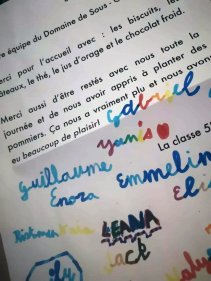 re équipe du Domaine de Sous-
erci pour l'accueil avec : les biscuits, les
teaux, le thé, le jus d'orage et le chocolat froid.
Merci aussi d'être restés avec nous toute la
journée et de nous avoir appris à planter des
pommiers. Ça nous a vraiment plu et nous avons
eu beaucoup de plaisir!
Gabriel
Yanis
La classe 5
Guillaume
Emmeline
Enora
LEANA
Jack